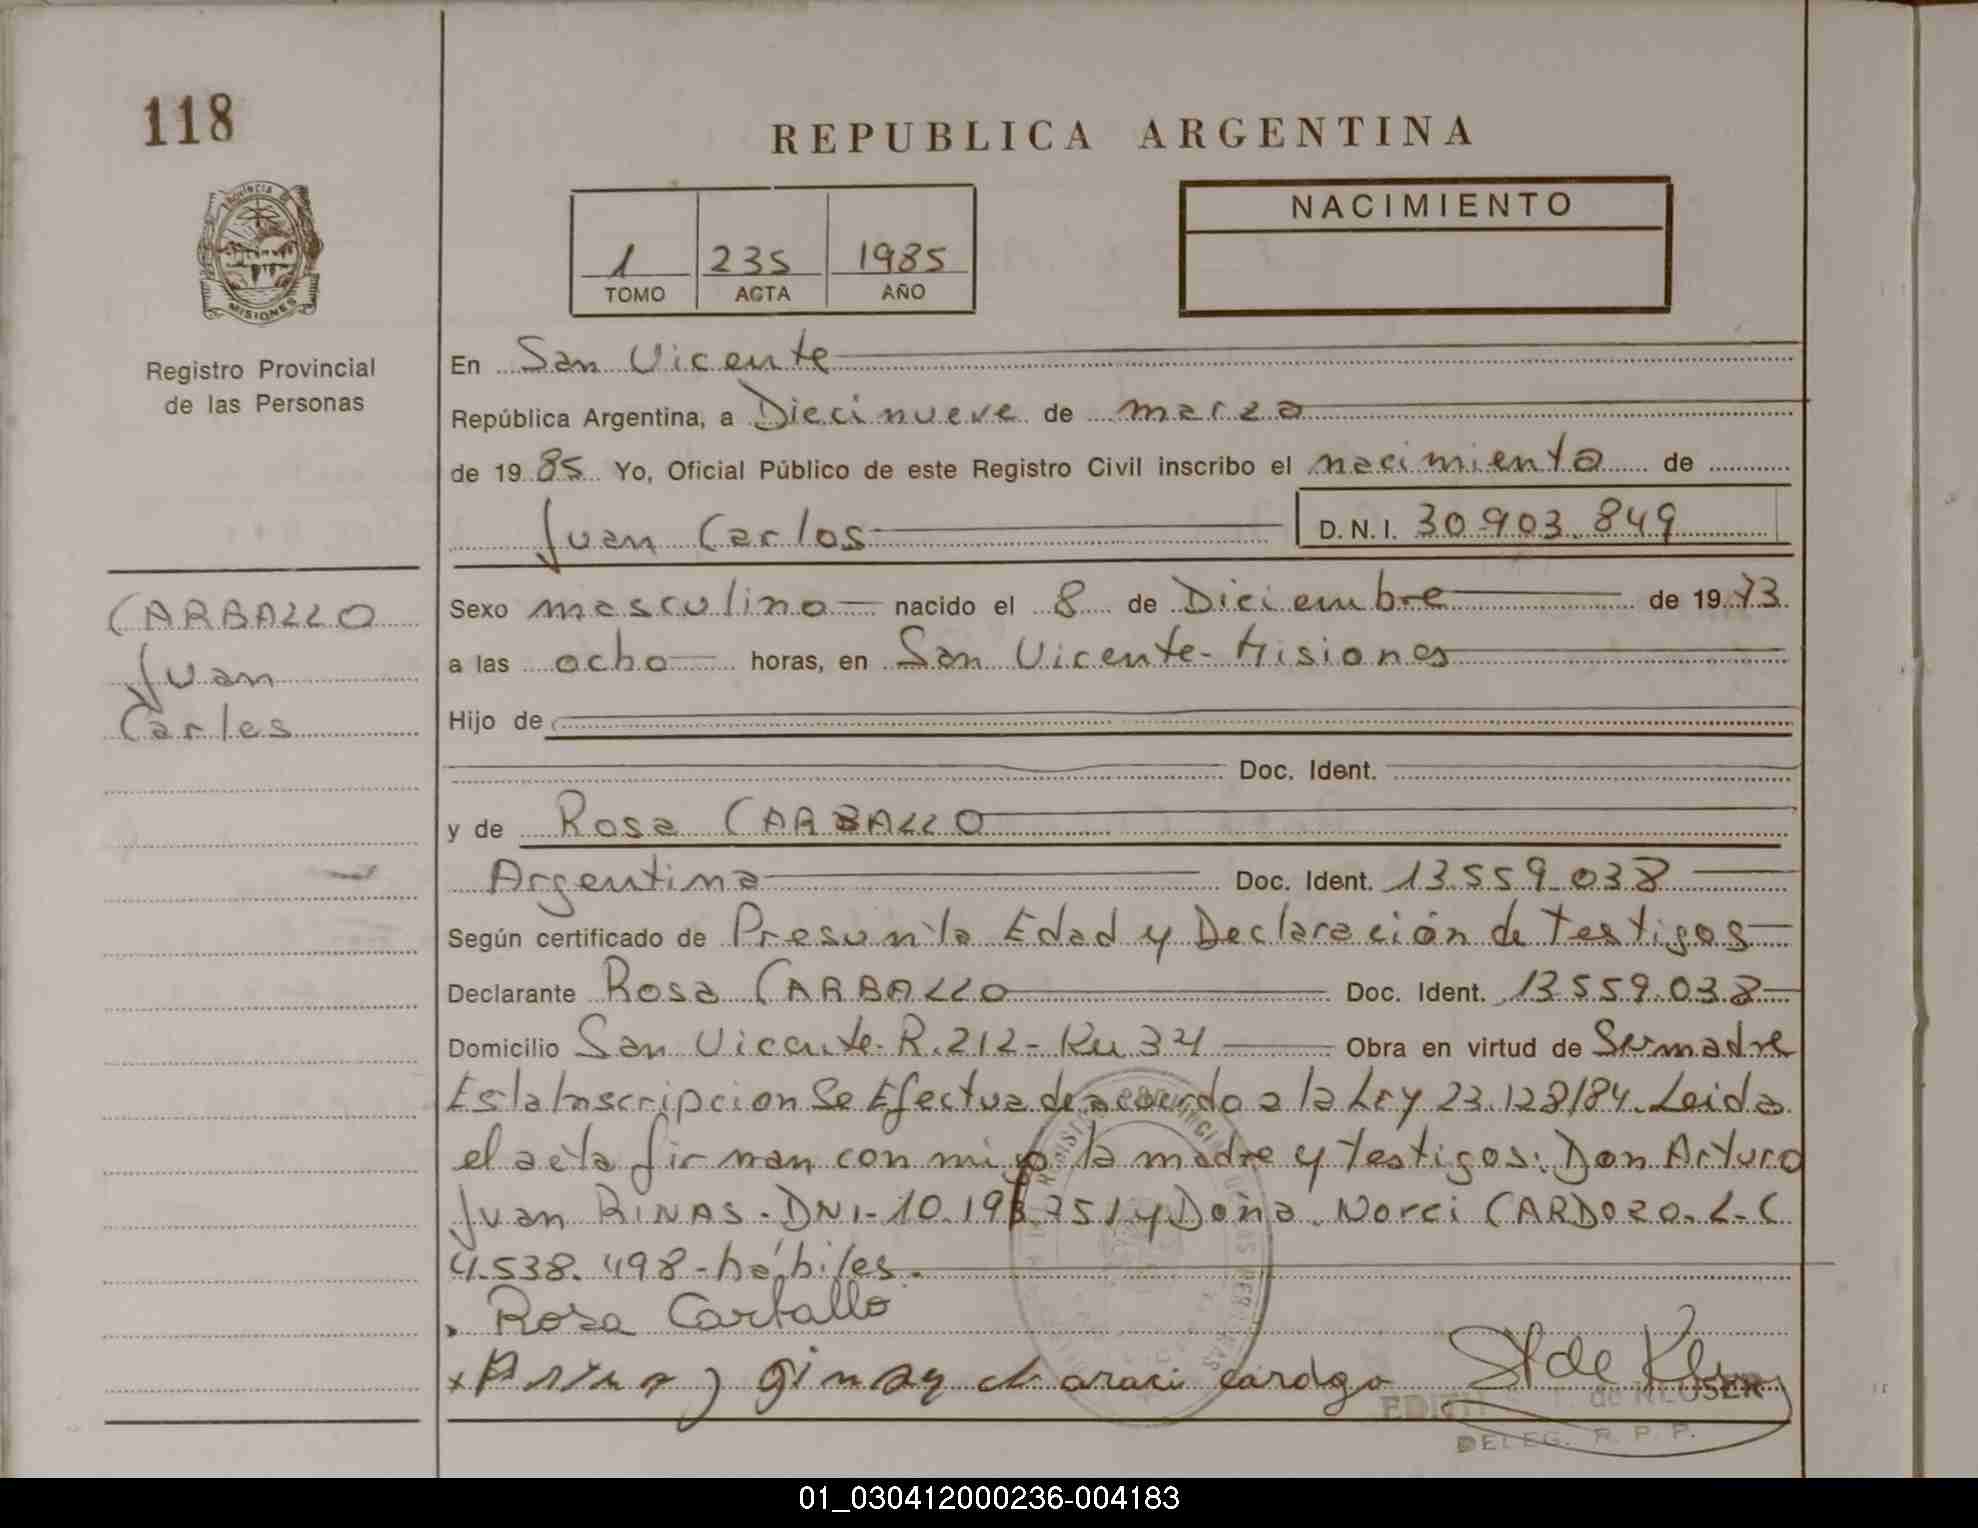 118
REPUBLICA ARGENTINA
PROVINCIA
MISIONES
Registro Provincial
de las Personas
1 235 1985
TOMO ACTA AÑO
NACIMIENTO
En San Vicente
República Argentina, a Diecinueve de marzo
de 1985 Yo, Oficial Público de este Registro Civil inscribo el nacimiento de
Juan Carlos D.N.I. 30.903.849
CARBALLO
Juan
Carlos
Sexo masculino nacido el 8 de Diciembre de 1973
a las ocho horas, en San Vicente - Misiones
Hijo de
Doc. Ident.
y de Rosa CARBALLO
Argentina Doc. Ident. 13.559.038
Según certificado de Presunta Edad y Declaración de testigos
Declarante Rosa CARBALLO Doc. Ident. 13.559.038
Domicilio San Vicente - R. 212 - Km 34 Obra en virtud de Ser madre
Esta Inscripcion Se Efectua de acuerdo a la Ley 23.128/84. Leida
el acta firman conmigo la madre y testigos: Don Arturo
Juan RINAS - DNI - 10.198.751 y Doña Norci CARDOZO - L-C
4.538.498 - hábiles.
Rosa Carballo
x Arturo J araci cardozo St de Kluser
EDITH de KLUSER
DELEG. R. P. P.
01_030412000236-004183